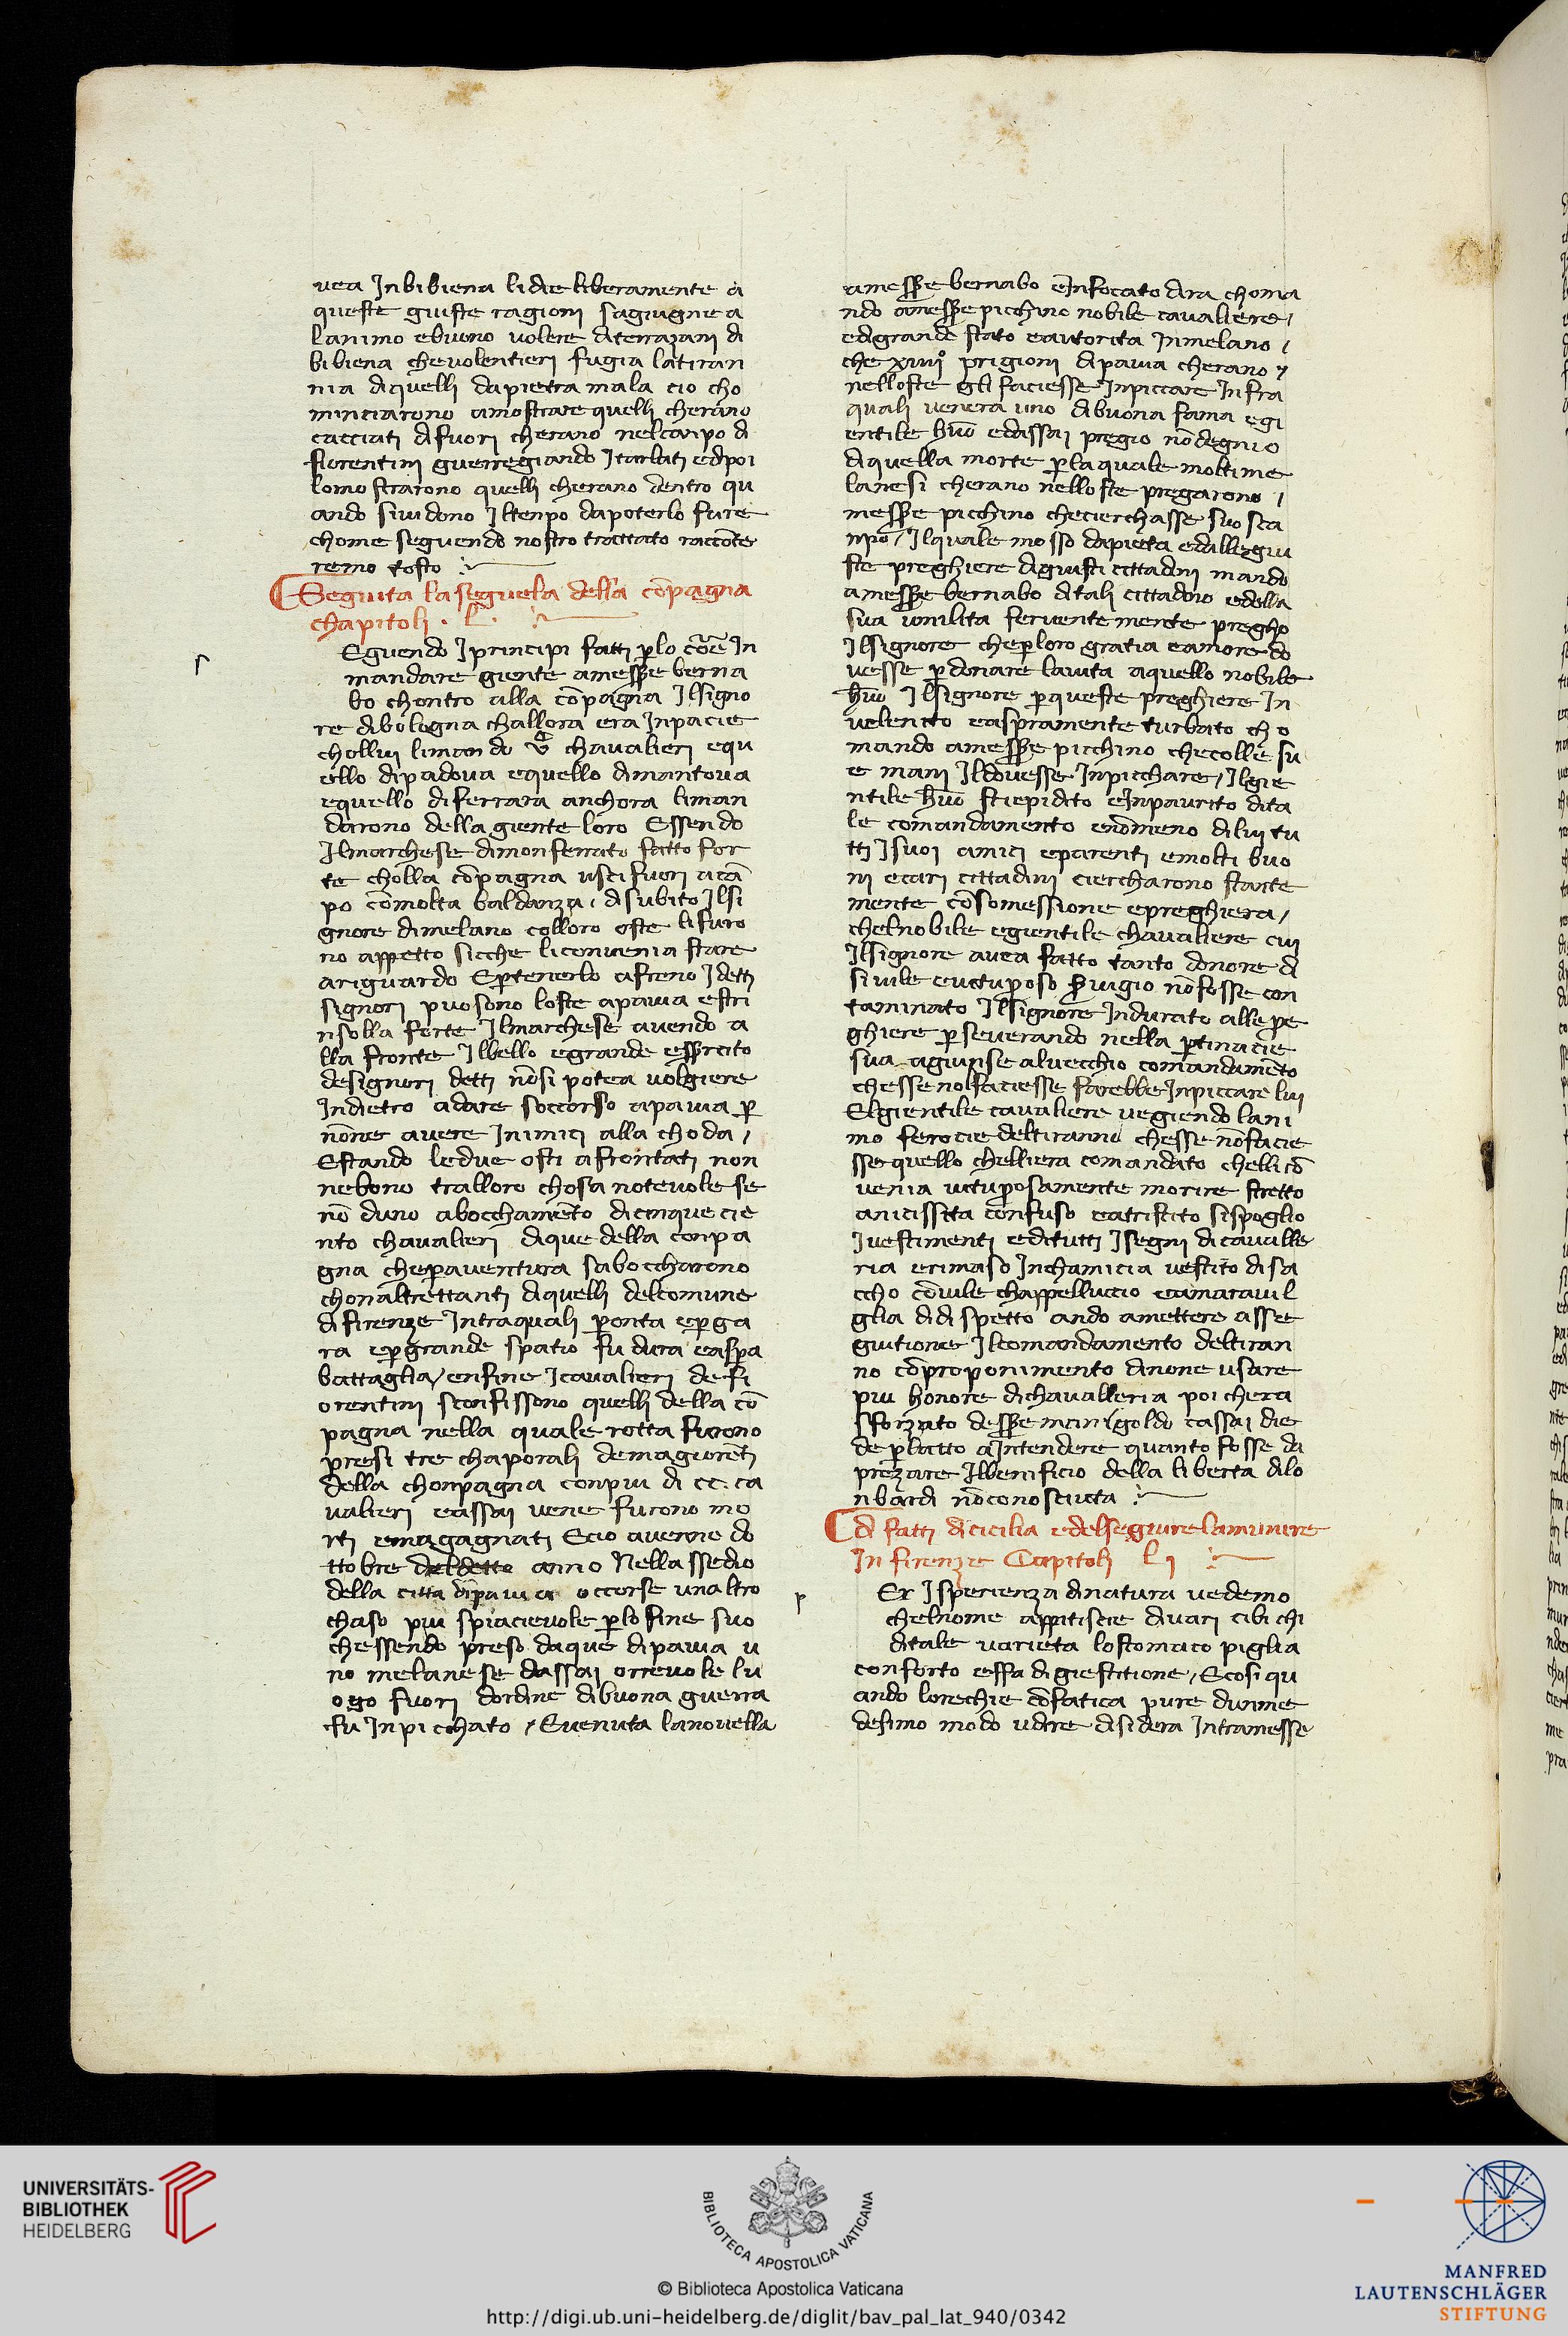 vea Inbibiena lidie liberamente a
queste giuste ragioni sagiugne a
lanimo ebuono volere diterrazani di
bibiena chevolentieri fugia latiran
nia diquelli dapietra mala cio cho
minciarono amostrare quelli cherano
cacciati difuori cherano nelcanpo di
fiorentini guerregiando Itarlati edipoi
lomostrarono quelli cherano dentro qu
ando sividono Iltenpo dapoterlo fare
chome seguendo nostro trattato racconte
remo tosto
Seguita laseguela della cōpagna
chapitoli . L .
Eguendo Iprincipi fatti p̄lo cōe In
mandare giente amess̄e berna
bo chontro alla cōpagna Ilsigno
re dibologna challora era Inpacie
chollui limando chavalieri equ
ello dipadova equello dimantova
equello diferrara anchora liman
darono della giente loro Essendo
Ilmarchese dimonferrato fatto for
te cholla cōpagna uscifuori acā
po cōmolta baldanza, disubito Ilsi
gnore dimelano colloro oste lifuro
no appetto sicche liconvenia stare
ariguardo Ep̄tenerlo afreno Idetti
signori puosono loste apavia estri
nsolla forte Ilmarchese avendo a
lla fronte Ilbello egrande esse͞rcito
designori detti nōsi potea volgiere
Indietro adare soccorso apavia p̄
nōne avere Inimici alla choda,
Estando ledue osti afrontati non
nebono tralloro chosa notevole se
nō duno abocchamēto dicinque cie
nto chavalieri dique della conpa
gna chep̄aventura sabocharono
chonaltrettanti diquelli delcomune
difirenze Intraquali p̄onta ep̄ga
ra ep̄grande spatio fu dura easp̄a
battaglia, enfine Icavalieri de fi
orentini sconfissono quelli della cō
pagna nella quale rotta furono
presi tre chaporali demagiorēti
della chonpagna conpiu di cc. ca
valieri eassai vene furono mo
rti emagagnati Ecio avenne do
ttobre deldetto anno Nella ssedio
della citta dipavia occorse unaltro
chaso piu spiacievole p̄lo fine suo
chessendo preso daque dipavia u
no melanese dassai orrevole lu
ogo fuori dordine dibuona guerra
fu Inpicchato, Evenuta lanovella
r
amess̄e bernabo eInfocato dira choma
ndo amess̄e picchino nobile cavaliere,
edigrande stato eautorita Inmelano,
che xiiii° prigioni dipavia cherano
nelloste gli faciesse Inpiccare Infra
quali venera uno dibuona fama egi
entile huō edassai pregio nōdegnio
diquella morte p̄laquale moltime
lanesi cherano nelloste pregarono,
mess̄e picchino checierchasse suo sca
npo, Ilquale mosso dapieta edallegiu
ste preghiere digiusti cittadini mando
amess̄e bernabo ditali cittadini edella
sua umilita ferventemente pregho
Ilsignore chep̄loro gratia eamore do
vesse p̄donare lavita aquello nobile
huō Ilsignore p̄queste preghiere In
velenito easpramente turbato cho
mando amess̄e picchino checolle su
e mani Ildovesse Inpicchare, Ilgie
ntile huō stiepidito eInpaurito dita
le comandamento enōmeno dilui tu
tti Isuoi amici eparenti emolti buo
ni ecari cittadini cierchorono stante
mente cōsomessione epreghiera,
chelnobile egientile chavaliere cui
Ilsignore avea fatto tanto donore di
sivile evitup̄oso s̄vigio nōfosse con
taminato Ilsignore Indurato alle pe
ghiere p̄severando nella p̄tinacie
sua agiunse alvecchio comandamēto
chesseno faciesse farebbe Inpiccare lui
Elgientile cavaliere vegiendo lani
mo ferocie deltiranno chesse nōfacie
sse quello chelliera comandato chelli cō
venia vitup̄osamente morire stretto
anicissita confuso eatristito sispoglio
Ivestimenti editutti Isegni dicavalle
ria erimaso Inchamicia vestito disa
ccho cōvile chappelluccio eamaravil
glia didispetto ando amettere asse
guitione Ilcomandamento deltiran
no cōproponimento dinone usare
piu honore dichavalleria poi chera
sforzato dess̄e manigoldo eassai die
de p̄latto aIntendere quanto fosse da
prezzare Ilbenificio della liberta dilo
nbardi nōconosciuta
di fatti dicicilia edelseguire lamunire
In firenze Capitoli Li
p
Er Isperienza dinatura vedemo
chelnome appitiscie divari cibi chi
ditale varieta lostomaco piglia
conforto effa digiestitione, Ecosi qu
ando lorechie cōfatica pure dunme
desimo modo udire disidera Intramesse
UNIVERSITÄTS-
BIBLIOTHEK
HEIDELBERG
BIBLIOTECA APOSTOLICA VATICANA
© Biblioteca Apostolica Vaticana
http://digi.ub.uni-heidelberg.de/diglit/bav_pal_lat_940/0342
MANFRED
LAUTENSCHLÄGER
STIFTUNG